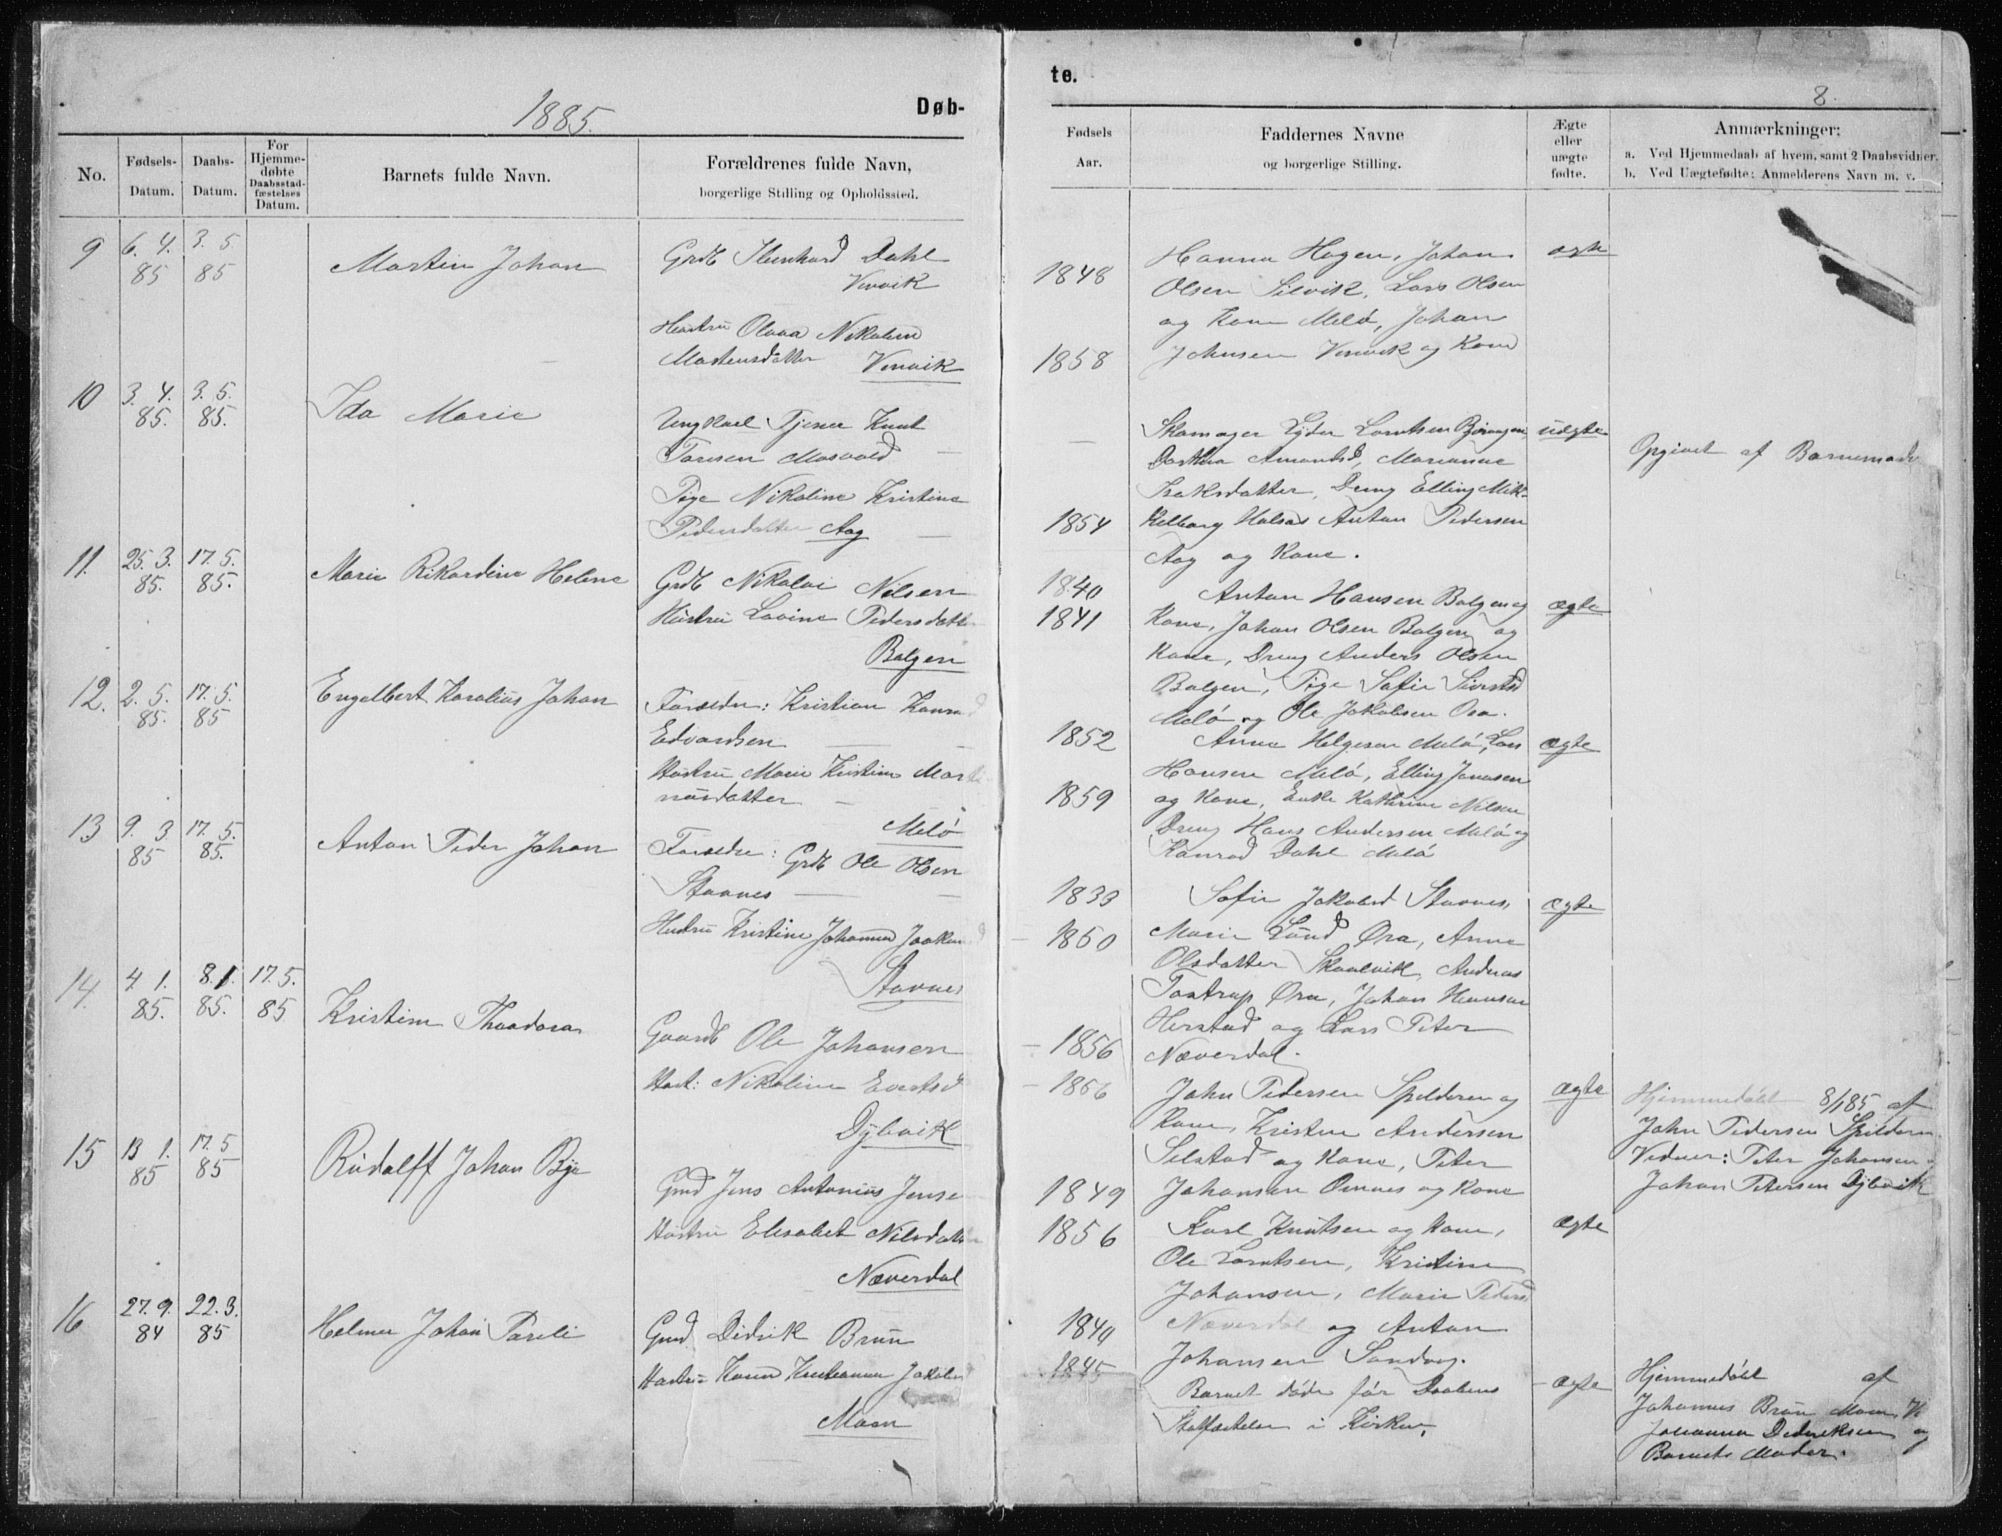 1885.
Døb-
te.
8.
No.
Fødsels-
Datum.
Daabs-
Datum.
For
Hjemme-
døbte
Daabsstad-
fæstelses
Datum.
Barnets fulde Navn.
Forældrenes fulde Navn,
borgerlige Stilling og Opholdssted.
Fødsels
Aar.
Faddernes Navne
og borgerlige Stilling.
Ægte
eller
uægte
fødte.
Anmærkninger:
a. Ved Hjemmedaab af hvem, samt 2 Daabsvidner.
b. Ved Uægtefødte: Anmelderens Navn m. v.
9
6. 4.
85
3. 5
85
Martin Johan
Grdb Dahl
Vervik
Hustru Olava Nikoline
Martensdatter Vervik
1848
1858
Hanna Hagen, Johan
Olsen Silvik, Lars Olsen
og Kone Melø, Johan
Johnsen Vervik og Kone
ægte
10
3. 4.
85.
3. 5.
85.
Ida Marie
Ungkarl Tjener Knut
Toresen Mosvold
Pige Nikoline Kristine
Pedersdatter Aag
1854
Skomager Lyder Lorntsen
Dorthea Amundsd, Marianne
Isaksdatter, Dreng Elling Mik-
kelborg Halsa Anton Pedersen
Aag og Kone.
uægte
Opgivet af Barnemod
11.
25. 3.
85.
17. 5.
85.
Marie Rikardine Helene
Grdb Nikolai Nilsen
Hustru Lovine Pedersdatt
Bolgen
1840
1841
Anton Hansen Bolgen og
Kone, Johan Olsen Bolgen og
Kone, Dreng Anders Olsen
Bolgen, Pige Sofie Sivertsd
Melø og Ole Jakobsen Ora.
ægte
12.
2. 5.
85.
17. 5.
85
Engelbert Karolius Johan
Forældre: Kristian Konrad
Edvardsen
Hustru Marie Kristine Marti
nusdatter
Melø
1852
1859
Anne Helgesen Melø, Lars
Hansen Melø, Elling Jonassen
og Kone, Enke Kathrine Nilsen
Dreng Hans Andersen Melø og
Konrad Dahl Melø
ægte
13
9. 3
85
17. 5.
85.
Anton Peder Johan
Forældre: Grdb Ole Olsen
Stavnes
Hustru Kristine Johanna
Stavnes
1833
1850
Sofie Jakobsd Stavnes,
Marie Lund Øra, Anne
Olsdatter Skaalvik, Andreas
Tostrup Øra, Johan Hansen
Herstad og Lars Peter
Næverdal.
ægte
14.
4 1.
85.
8. 1.
85.
17. 5.
85
Kristine Theodora
Gaardb Ole Johansen
Hust: Nikoline Evertsd
Dybvik
1856
1856
John Pedersen Spilderen og
Kone, Kristen Andersen
Selstad og Kone, Peter
Johansen Omnes og Kone
ægte
Hjemmedøbt 8/1 85 af
John Pedersen Spilderen
Vidner: Peter Johansen
Johan Petersen Dybvik
15
13 1.
85
17. 5
85
Rudolff Johan Bye
Gmd Jens Antonius Jense
Hustru Elisabet Nilsdatter
Næverdal
1849
1856
Karl Knutsen og Kone,
Ole Lorntsen, Kristine
Johansen, Marie Pedersd
Næverdal og Anton
Johansen Sandvog.
ægte
16
27. 9.
84
22. 3.
85
Helmer Johan Pareli
Gmd. Didrik Brun
Hustru Karen Kristianna Jakobsd
Moen
1840
1845
Barnet døde før Daabens
Stadfæstelse i Kirken.
ægte
Hjemmedøbt af
Johannes Brun Moen V
Johanna Dideriksen og
Barnets Moder.